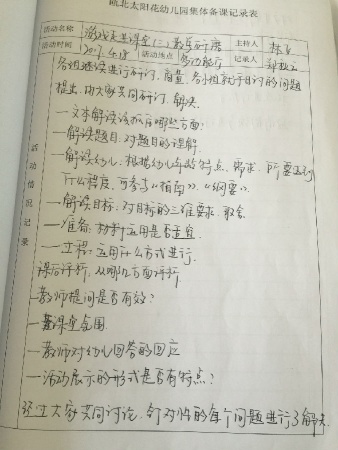 瓯北太阳花幼儿园集体备课记录表
活动名称 游戏走进课堂(二)教学研磨 主持人
活动时间 2017.4.18 活动地点 多功能厅 记录人
各组继续进行研讨、商量,各小组就于目讨的问题
提出,由大家共同研讨、解决。
一文本解读该从有哪些方面:
一解读题目、对题目的理解
一解读幼儿:根据幼儿年龄特点、需求、所要达到
什么程度,可参考《指南》、《纲要》
一解读目标:对目标的三维要求、取舍
一准备:材料运用是否适宜
一过程:运用什么方式进行
课后评析,从哪几方面评析
一教师提问是否有效?
一课堂氛围
一教师对幼儿回答的回应
一活动展示的形式是否有特点?
经过大家共同讨论,针对性的每个问题进行了解决
活动情况记录